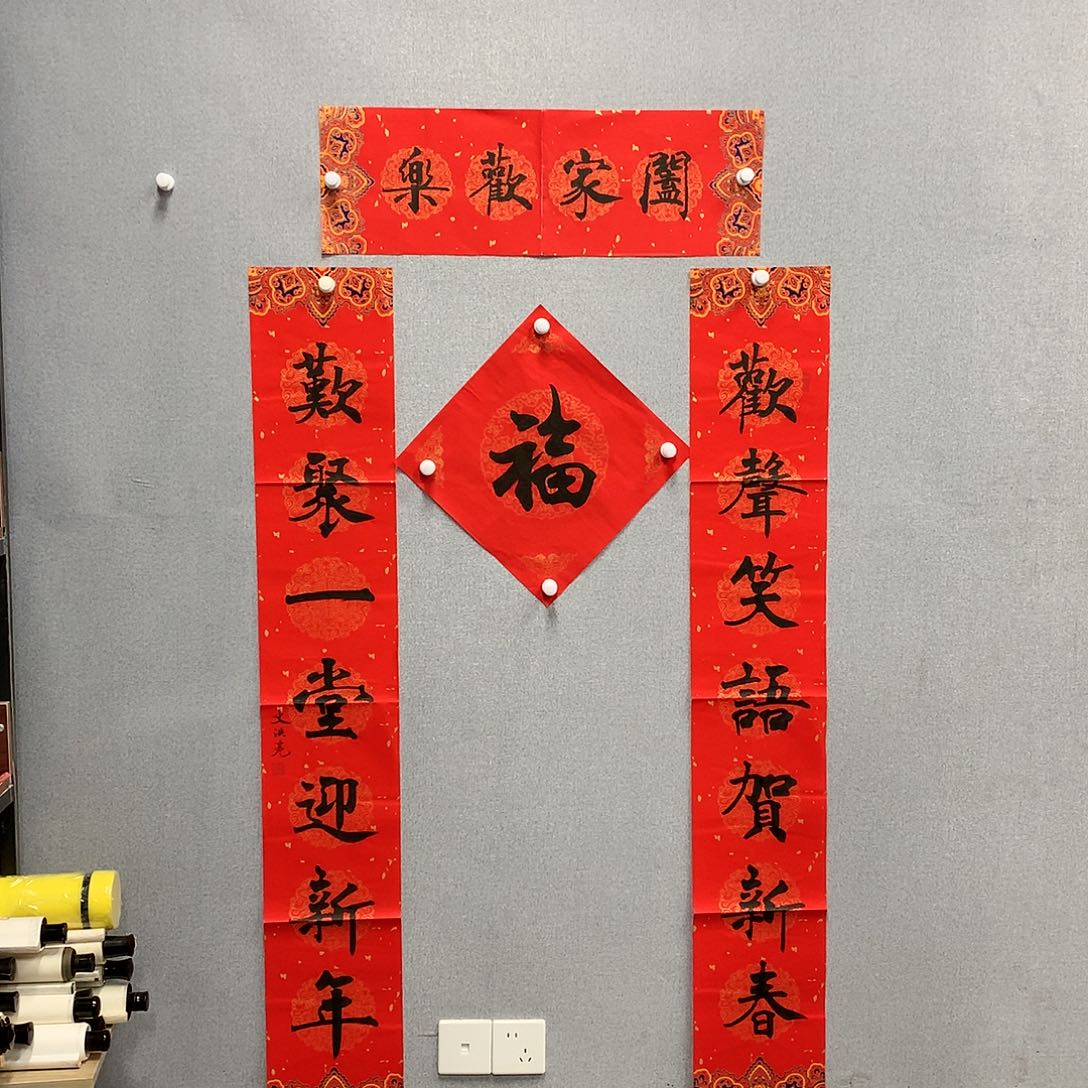 闔家歡樂
歡聲笑語賀新春
福
歎聚一堂迎新年
文洪亮